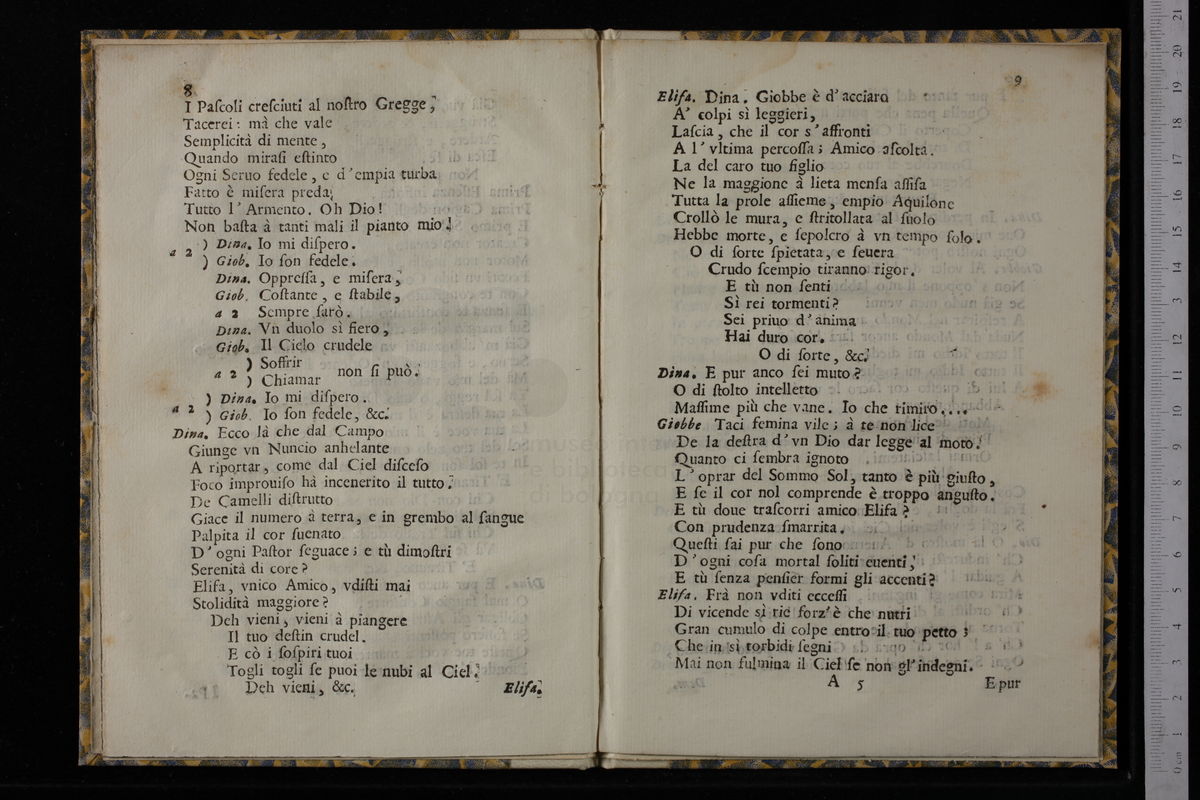 8
I Paſcoli creſciuti al noſtro Gregge,
Tacerei: mà che vale
Semplicità di mente,
Quando miraſi eſtinto
Ogni Seruo fedele, e d'empia turba
Fatto è miſera preda,
Tutto l'Armento. Oh Dio!
Non baſta à tanti mali il pianto mio!
a 2 ) Dina. Io mi diſpero.
) Giob. Io ſon fedele.
Dina. Oppreſſa, e miſera,
Giob. Coſtante, e ſtabile,
a 2 Sempre ſarò.
Dina. Vn duolo sì fiero,
Giob. Il Cielo crudele
a 2 ) Soffrir non ſi può.
) Chiamar
a 2 ) Dina. Io mi diſpero.
) Giob. Io ſon fedele, &c.
Dina. Ecco là che dal Campo
Giunge vn Nuncio anhelante
A riportar, come dal Ciel diſceſo
Foco improuiſo hà incenerito il tutto.
De Camelli diſtrutto
Giace il numero à terra, e in grembo al ſangue
Palpita il cor ſuenato
D'ogni Paſtor ſeguace; e tù dimoſtri
Serenità di core?
Elifa, vnico Amico, vdiſti mai
Stolidità maggiore?
Deh vieni, vieni à piangere
Il tuo deſtin crudel.
E cò i ſoſpiri tuoi
Togli togli ſe puoi le nubi al Ciel.
Deh vieni, &c.
Elifa.
9
Elifa. Dina. Giobbe è d'acciaro
A' colpi sì leggieri,
Laſcia, che il cor s'affronti
A l'vltima percoſſa; Amico aſcolta.
La del caro tuo figlio
Ne la maggione à lieta menſa aſſiſa
Tutta la prole aſſieme, empio Aquilone
Crollò le mura, e ſtritollata al ſuolo
Hebbe morte, e ſepolcro à vn tempo ſolo.
O di ſorte ſpietata, e ſeuera
Crudo ſcempio tiranno rigor.
E tù non ſenti
Sì rei tormenti?
Sei priuo d'anima
Hai duro cor.
O di ſorte, &c.
Dina. E pur anco ſei muto?
O di ſtolto intelletto
Maſſime più che vane. Io che rimiro....
Giobbe Taci femina vile; à te non lice
De la deſtra d'vn Dio dar legge al moto.
Quanto ci ſembra ignoto
L'oprar del Sommo Sol, tanto è più giuſto,
E ſe il cor nol comprende è troppo anguſto.
E tù doue traſcorri amico Elifa?
Con prudenza ſmarrita.
Queſti ſai pur che ſono
D'ogni coſa mortal ſoliti euenti,
E tù ſenza penſier formi gli accenti?
Elifa. Frà non vditi ecceſſi
Di vicende sì rie forz'è che nutri
Gran cumulo di colpe entro il tuo petto;
Che in sì torbidi ſegni
Mai non fulmina il Ciel ſe non gl'indegni.
A 5
E pur